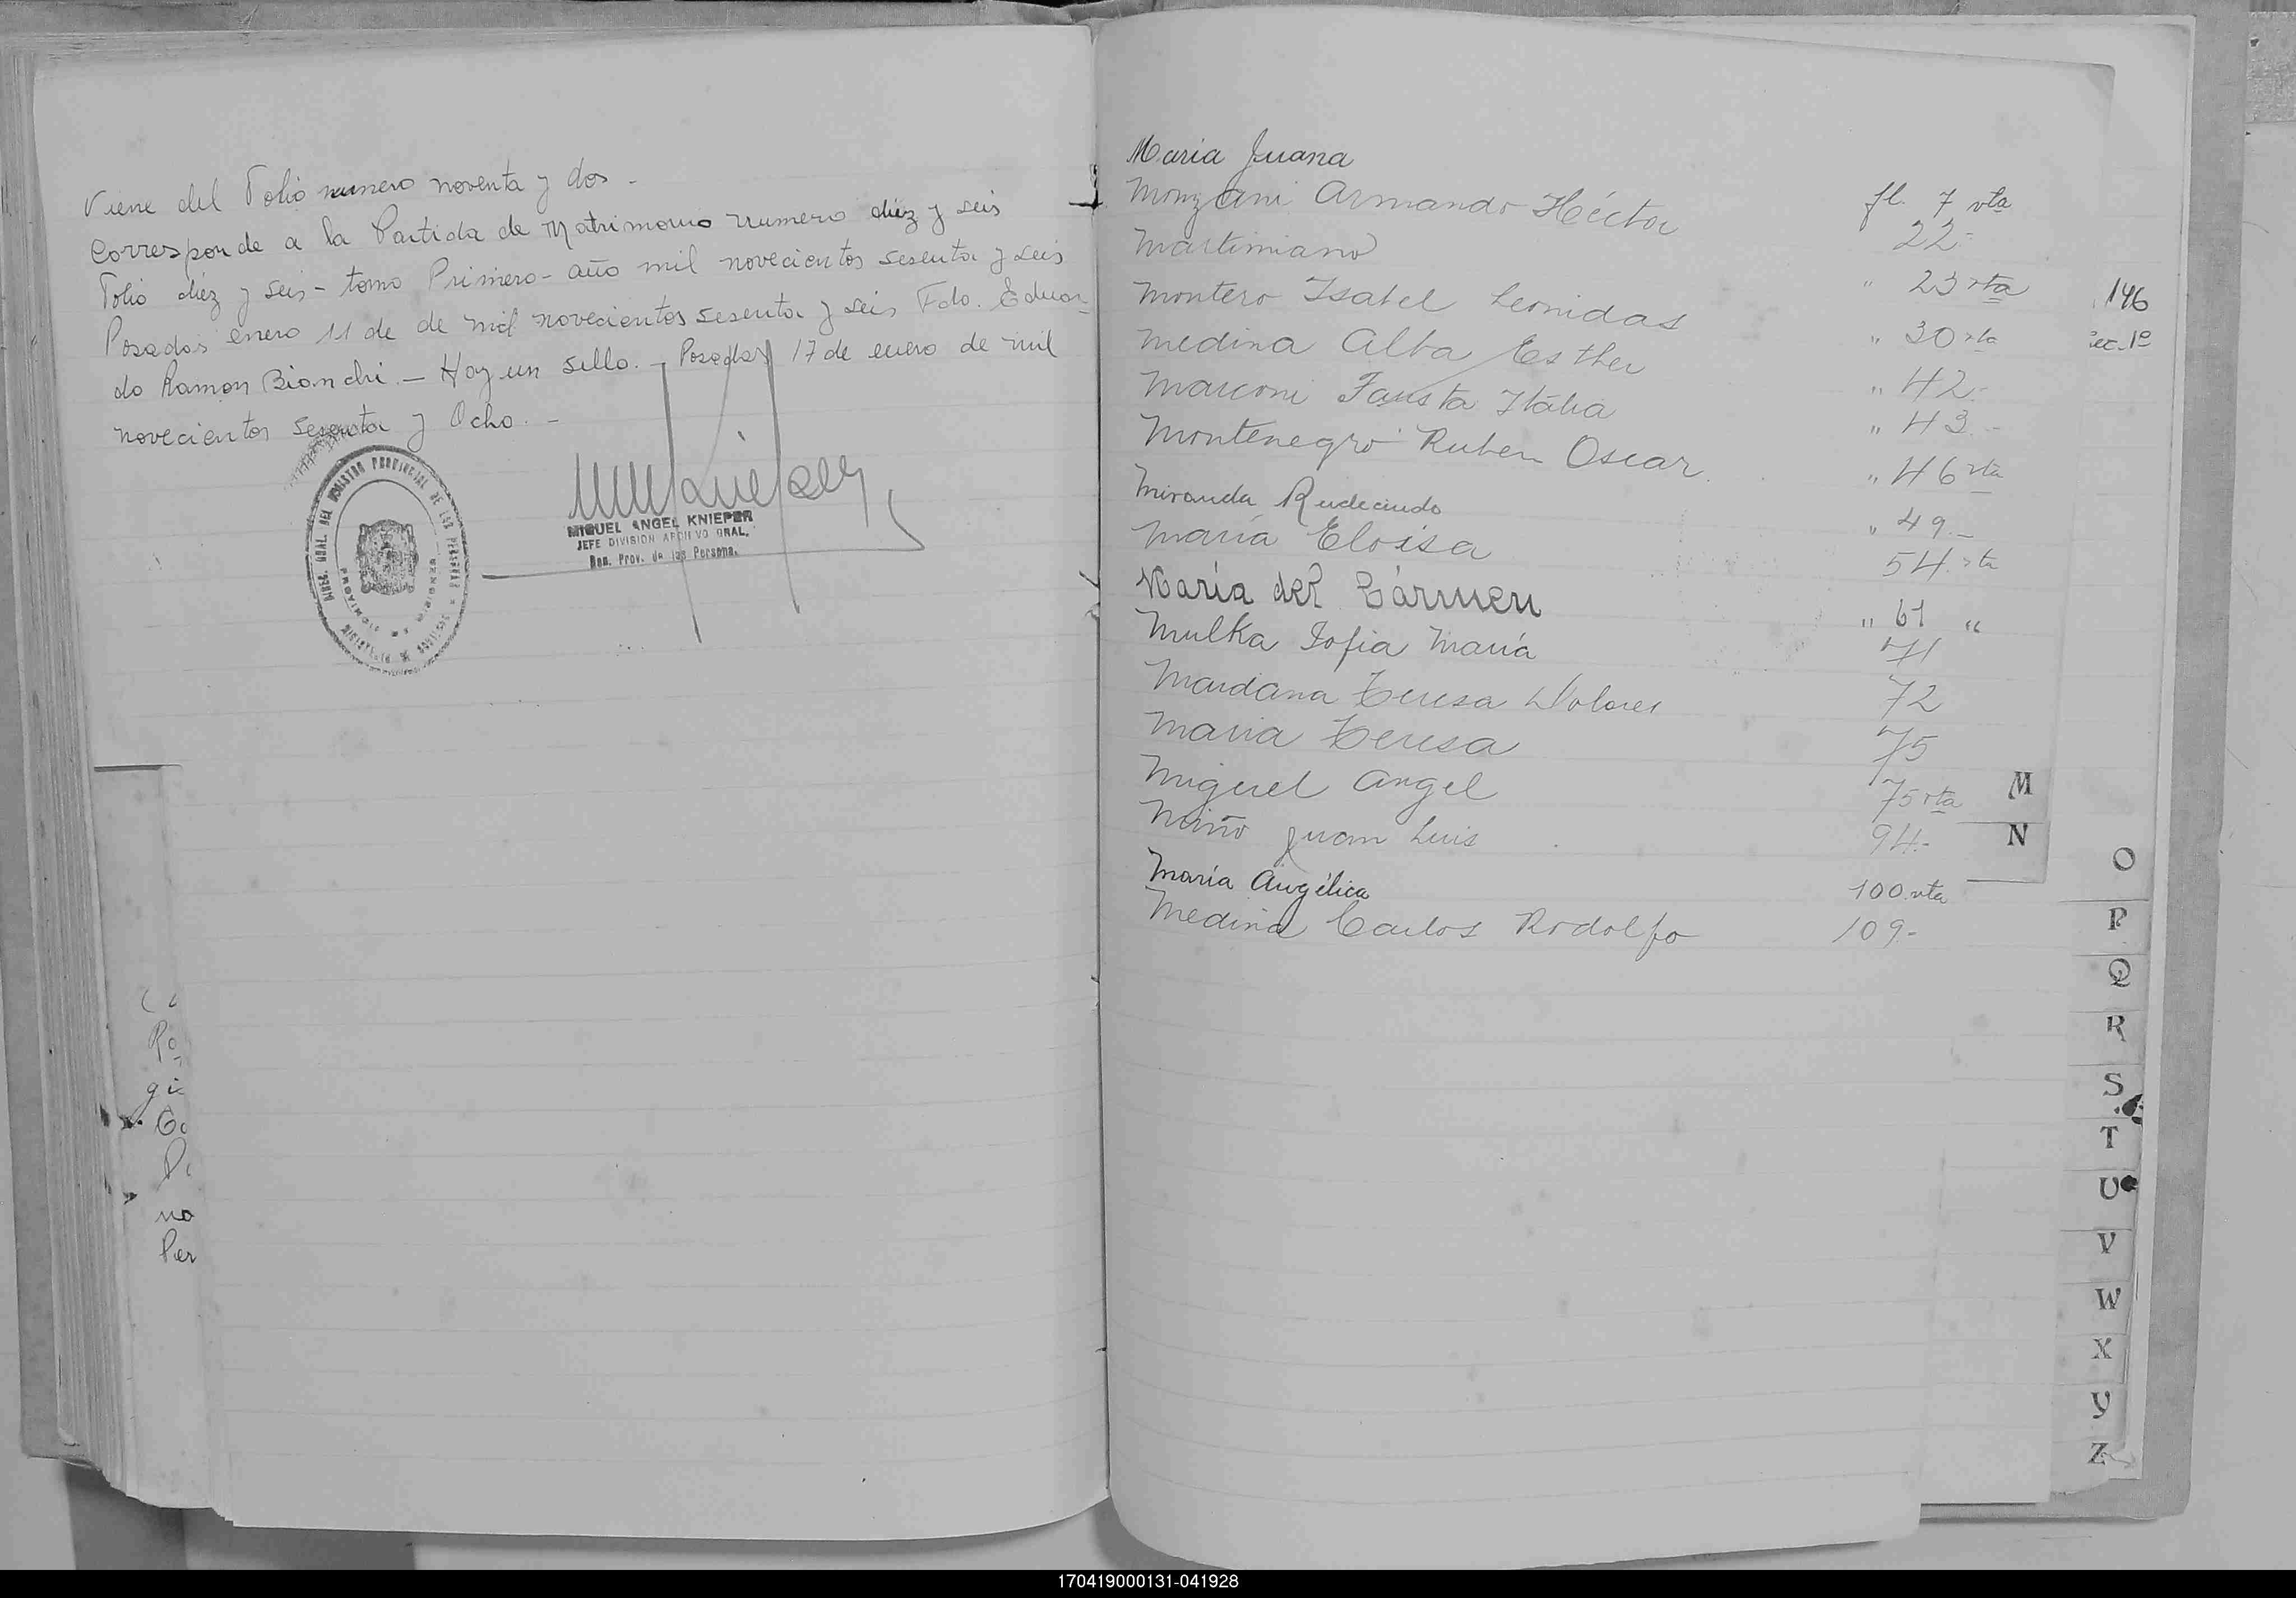 Viene del Folio numero noventa y dos -
Corresponde a la Partida de Matrimonio numero diez y seis
Folio diez y seis - tomo Primero - año mil novecientos sesenta y seis
Posadas enero 11 de de mil novecientos sesenta y seis Fdo. Eduar-
do Ramon Bianchi. - Hay un sello. - Posadas 17 de enero de mil
novecientos sesenta y Ocho. -
DIREC. GRAL. DEL REGISTRO PROVINCIAL DE LAS PERSONAS
MIGUEL ANGEL KNIEPER
JEFE DIVISION ARCHIVO GRAL.
Dan. Prov. de las Persona.
Ro
gi
Co
no
Per
Maria Juana fl. 7 vta
Monzani Armando Héctor 22-
Martimiano " 23 vta
Montero Isabel Leonidas " 30 vta
Medina Alba Esther " 42-
Marconi Fausta Itália " 43-
Montenegro Ruben Oscar " 46 vta
Miranda Rudecindo " 49-
María Eloisa 54 vta
María del Cármen " 61 "
Mulka Sofia María 71
Maidana Teresa Dolores 72
Maria Teresa 75
Miguel Angel 75 vta
Miño Juan Luis 94-
María Angélica 100 vta
Medina Carlos Rodolfo 109-
146
ec. 1º
M
N
O
P
Q
R
S
T
U
V
W
X
Y
Z
170419000131-041928